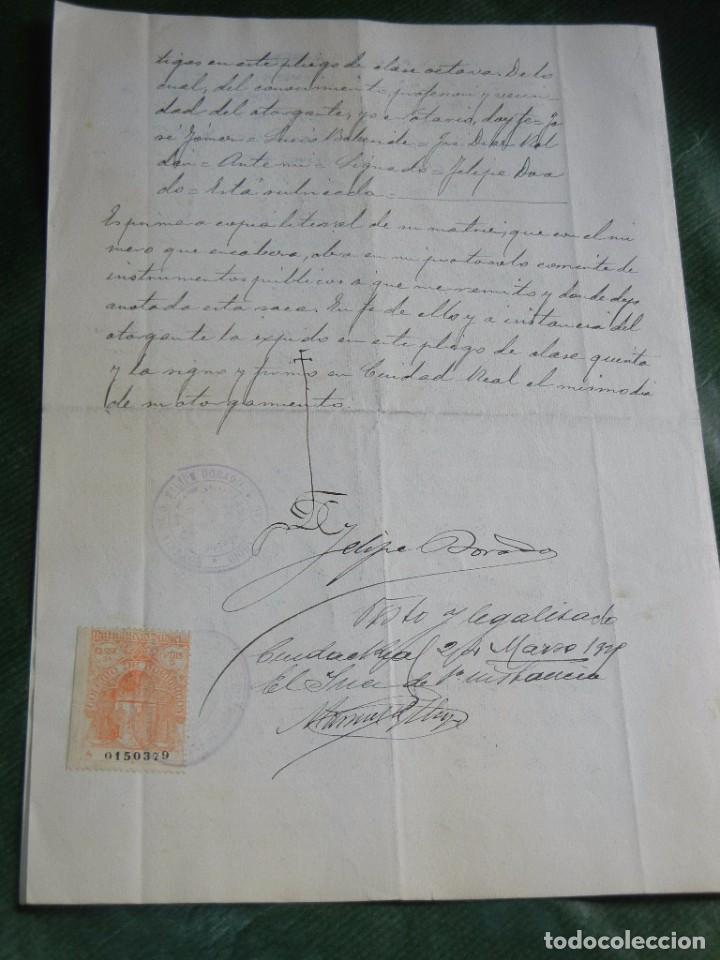 tigos en este pliego de clase octava. De lo
cual, del conocimiento, profesion y vecin
dad del otorgante, yo el Notario, doy fe = Jo
sé Gómez = Luis = José Diaz Rol
dan = Ante mi = Signado = Felipe Dora
do = Está rubricado =
Es primera copia literal de su matriz, que con el nú
mero que encabeza, obra en mi protocolo corriente de
instrumentos públicos a que me remito y donde dejo
anotada esta saca. En fe de ello y a instancia del
otorgante la expido en este pliego de clase quinta
y la signo y firmo en Ciudad Real el mismo dia
de su otorgamiento.
FELIPE DORADO
Felipe Dorado
Visto y legalisado
Ciudad Real 2/4 Marzo
El Juez de 1ª instancia
Manuel
A 0150379
todocoleccion
todocoleccion.net